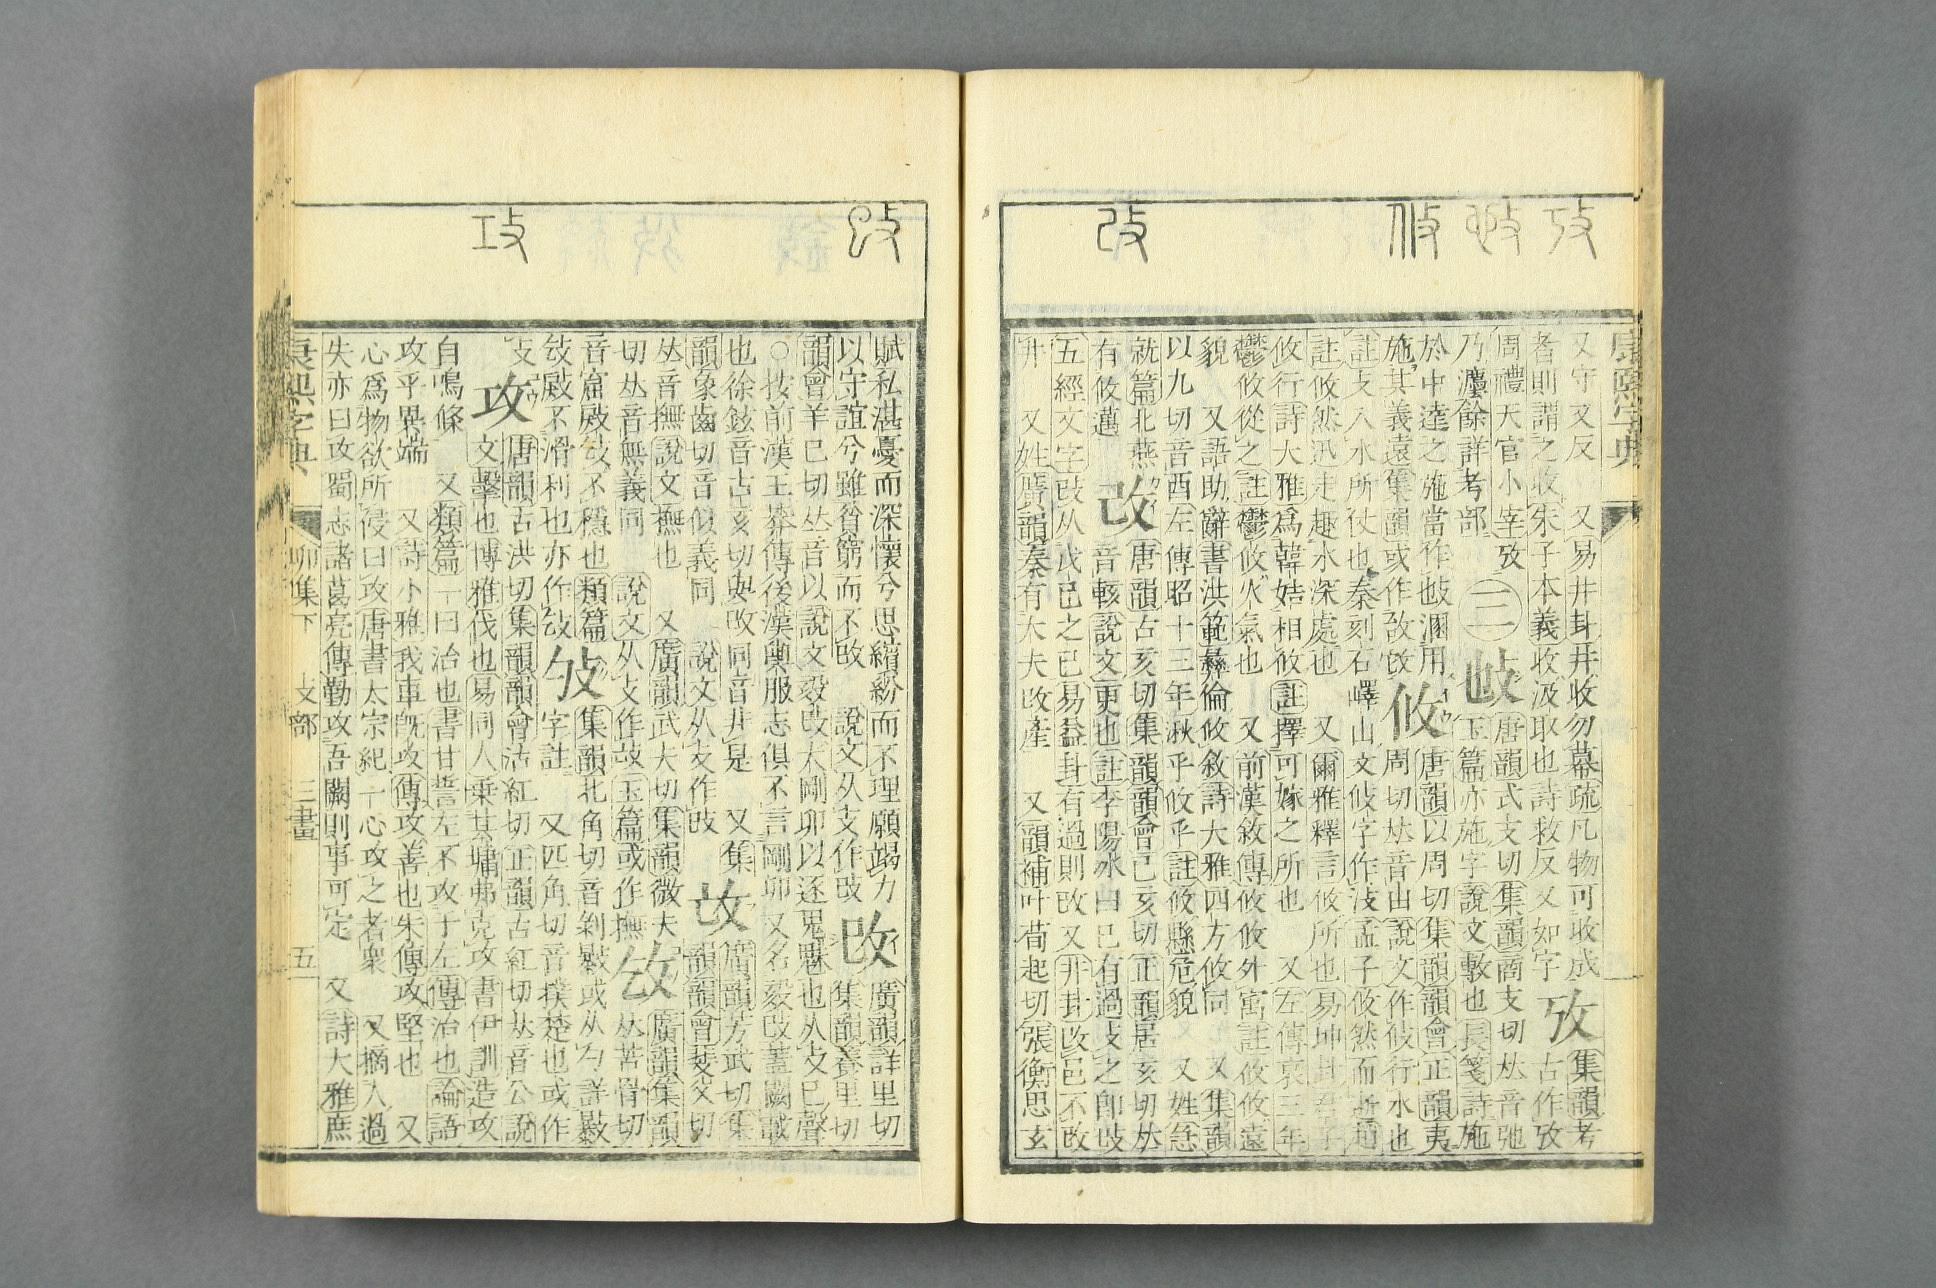 攷 𢻱 攸 改
康熙字典
又守又反 又易井卦井收勿幕疏凡物可收成
者則謂之收朱子本義收汲取也詩救反又如字 攷 集韻考
周禮天官小宰攷 古作攷
乃灋餘詳考部 三 𢻱 唐韻式支切集韻商支切𠀤音弛
玉篇亦施字說文敷也長箋詩施
於中逵之施當作𢻱溷用
施其義遠集韻或作 攸 唐韻以周切集韻韻會正韻夷
周切𠀤音由說文作攸行水也
註攴入水所仗也秦刻石嶧山文攸字作汥孟子攸然而逝
註攸然迅走趣水深處也 又爾雅釋言攸所也易坤卦君子
攸行詩大雅爲韓姞相攸註擇可嫁之所也 又左傳哀三年
鬱攸從之註鬱攸火氣也 又前漢敘傳攸攸外寓註攸攸遠
貌 又語助辭書洪範彝倫攸敘詩大雅四方攸同 又集韻
以九切音酉左傳昭十三年湫乎攸乎註攸懸危貌 又姓急
就篇北燕 改 唐韻古亥切集韻韻會己亥切正韻居亥切𠀤
有攸邁 音輆說文更也註李陽冰曰己有過攴之卽改
五經文字改从戊己之己易益卦有過則改又井卦改邑不改
井 又姓廣韻秦有大夫改產 又韻補叶苟起切張衡思玄
攺 攻
賦私湛憂而深懷兮思繽紛而不理願竭力
以守誼兮雖貧窮而不改 說文从攴作改 攺 廣韻詳里切
集韻養里切
韻會羊已切𠀤音以說文毅攺大剛卯以逐鬼鬽也从攴巳聲
○按前漢王莽傳後漢輿服志俱不言剛卯又名毅攺蓋闕載
也徐鉉音古亥切與改同音幷是 又集 𢻲 廣韻芳武切集
韻象齒切音似義同 說文从攴作攺 韻韻會斐父切
𠀤音撫說文撫也 又廣韻武夫切集韻微夫 㪃 廣韻集韻
切𠀤音無義同 說文从攴作𢻲玉篇或作撫 𠀤苦滑切
音窟㪃不穩也類篇 𢻮 集韻北角切音剝擊或从勹詳㩧
㪃不滑利也亦作㪃 字註 又匹角切音樸楚也或作
攴 攻 唐韻古洪切集韻韻會沽紅切正韻古紅切𠀤音公說
文擊也博雅伐也易同人乘其墉弗克攻書伊訓造攻
自鳴條 又類篇一曰治也書甘誓左不攻于左傳治也論語
攻乎異端 又詩小雅我車旣攻傳攻善也朱傳攻堅也 又
心爲物欲所侵曰攻唐書太宗紀一心攻之者衆 又摘人過
失亦曰攻蜀志諸葛亮傳勤攻吾闕則事可定 又詩大雅庶
康熙字典 卯集下 攴部 三畫 五